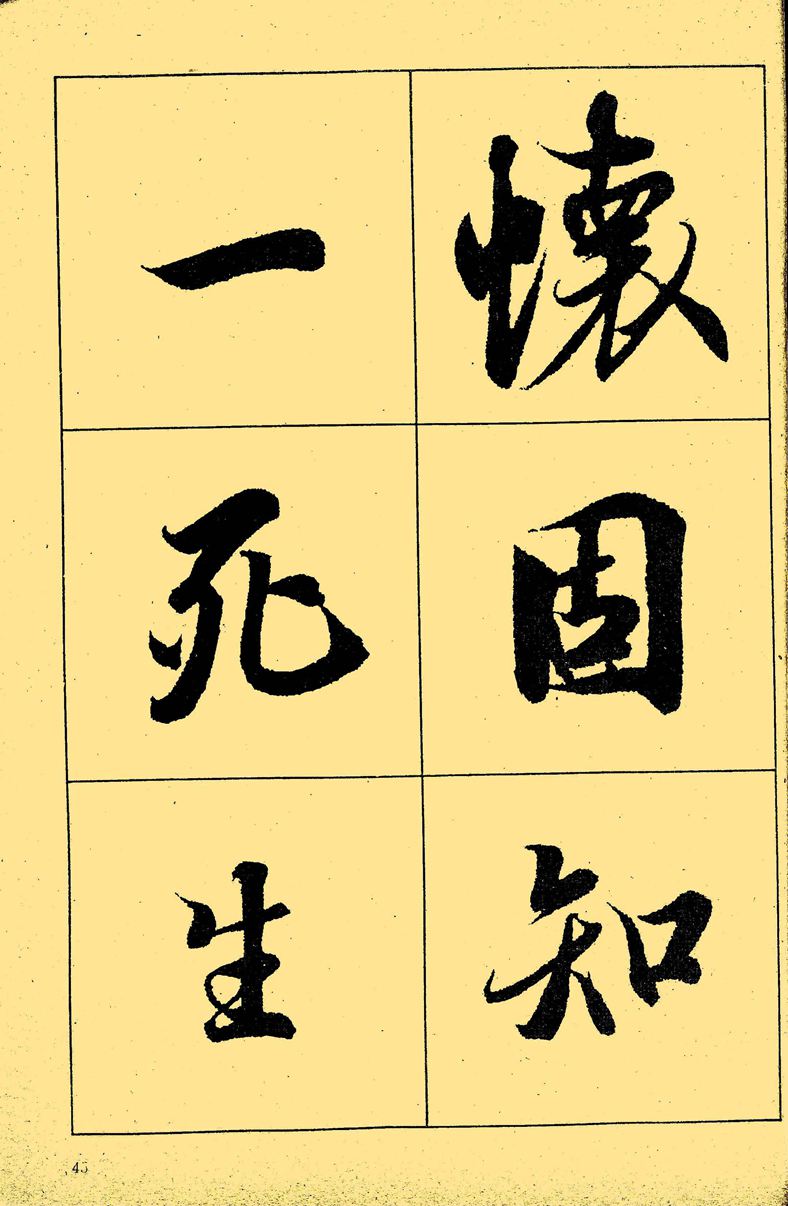 懷固知
一死生